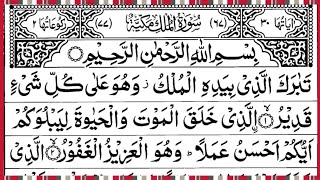 اٰيَاتُهَا ٣٠ (٦٧) سُوْرَةُ الْمُلْكِ مَكِّيَّةٌ (٧٧) رُكُوْعَاتُهَا ٢
بِسْمِ اللّٰهِ الرَّحْمٰنِ الرَّحِيْمِ
تَبٰرَكَ الَّذِيْ بِيَدِهِ الْمُلْكُ ز وَهُوَ عَلٰى كُلِّ شَيْءٍ
قَدِيْرُۨ ۝١ الَّذِيْ خَلَقَ الْمَوْتَ وَالْحَيٰوةَ لِيَبْلُوَكُمْ
اَيُّكُمْ اَحْسَنُ عَمَلًا ط وَهُوَ الْعَزِيْزُ الْغَفُوْرُ ۝٢ الَّذِيْ